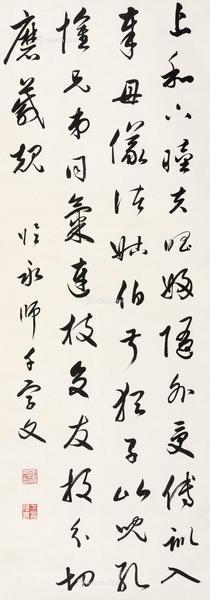 上和下睦夫唱婦隨外受傅訓入
奉母儀諸姑伯叔猶子比兒孔
懷兄弟同氣連枝交友投分切
磨箴規
臨永師千字文